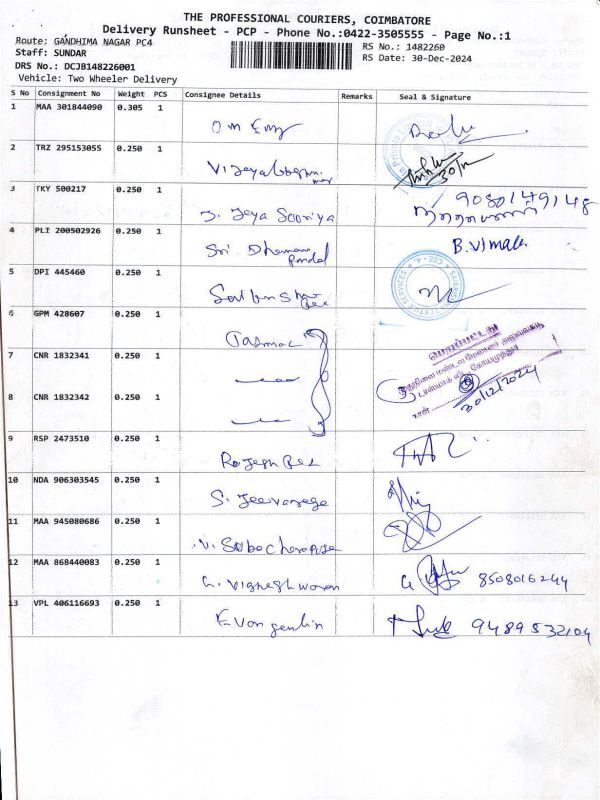 THE PROFESSIONAL COURIERS, COIMBATORE
Delivery Runsheet - PCP - Phone No.:0422-3505555 - Page No.:1
Route: GANDHIMA NAGAR PC4
RS No.: 1482260
Staff: SUNDAR
RS Date: 30-Dec-2024
DRS No.: DCJB148226001
Vehicle: Two Wheeler Delivery
S No Consignment No Weight PCS Consignee Details Remarks Seal & Signature
1 MAA 301844090 0.305 1
2 TRZ 295153055 0.250 1
30/12
3 TKY 500217 0.250 1 9080149148
J. Jeya Sooriya
4 PLI 200502926 0.250 1 B.Vimala
Sri
5 DPI 445460 0.250 1
6 GPM 428607 0.250 1
Tasmac
பெறப்பட்டது
7 CNR 1832341 0.250 1
8 CNR 1832342 0.250 1
நாள் 30/12/2024
9 RSP 2473510 0.250 1
Rajesh
10 NDA 906303545 0.250 1
S.
11 MAA 945080686 0.250 1
12 MAA 868440083 0.250 1
G. Vigneshwaran 8508016244
13 VPL 406116693 0.250 1
Evangenlin 9489532104